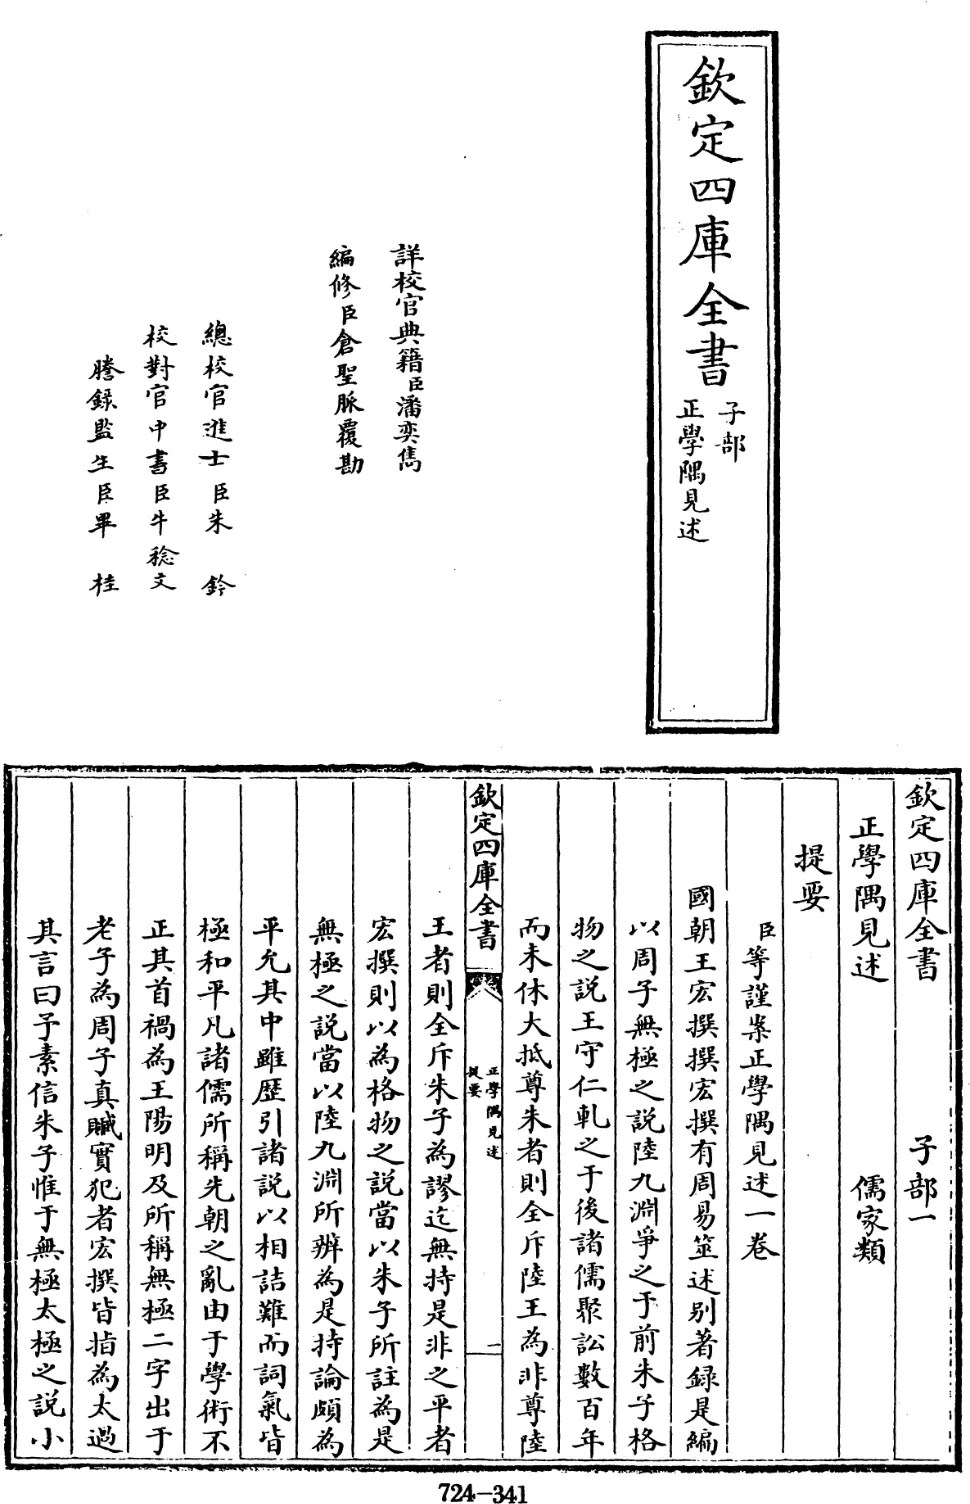 欽定四庫全書
子部
正學隅見述
詳校官典籍臣潘奕雋
編修臣倉聖脈覆勘
總校官進士臣朱鈐
校對官中書臣牛稔文
謄錄監生臣畢桂
欽定四庫全書 子部一
正學隅見述 儒家類
提要
臣等謹案正學隅見述一卷
國朝王宏撰撰宏撰有周易筮述别著録是編
以周子無極之説陸九淵爭之于前朱子格
物之説王守仁軋之于後諸儒聚訟數百年
而未休大抵尊朱者則全斥陸王為非尊陸
欽定四庫全書
正學隅見述
提要
一
王者則全斥朱子為謬迄無持是非之平者
宏撰則以為格物之説當以朱子所註為是
無極之説當以陸九淵所辨為是持論頗為
平允其中雖歴引諸説以相詰難而詞氣皆
極和平凡諸儒所稱先朝之亂由于學術不
正其首禍為王陽明及所稱無極二字出于
老子為周子真贓實犯者宏撰皆指為太過
其言曰予素信朱子惟于無極太極之説小
724-341